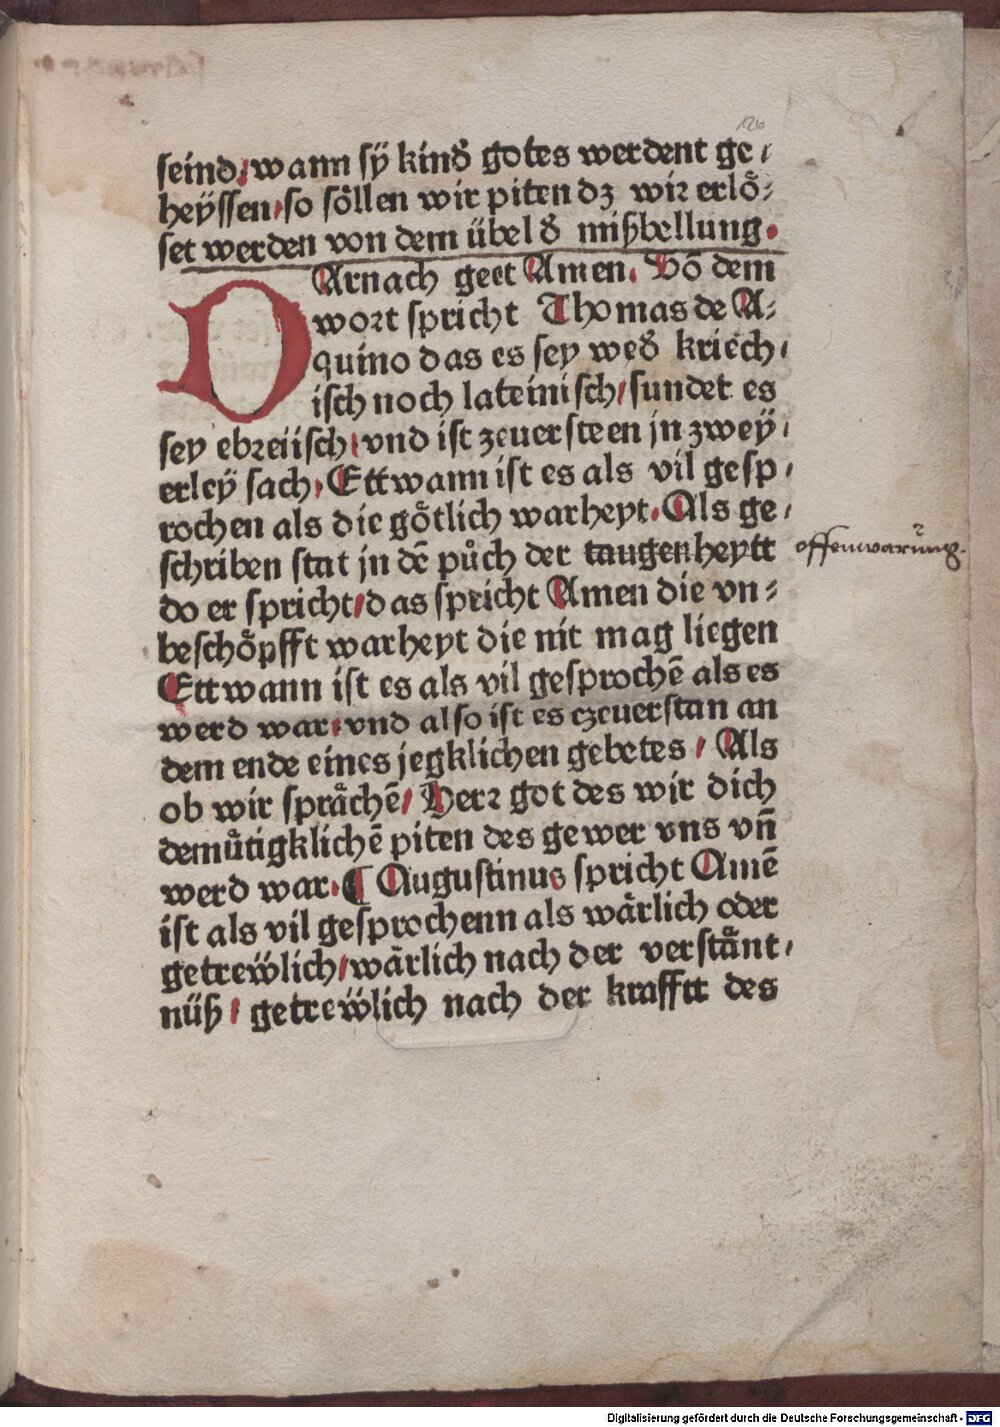 120
seind / wann sÿ kind᷑ gotes werdent ge /
heÿssen / so soͤllen wir piten dz wir erloͤ⸗
set werden von dem übel d᷑ mißhellung.
DArnach geet Amen. Võ dem
wort spricht Thomas de A⸗
quino das es sey wed᷑ kriech /
isch noch lateinisch / sunder es
sey ebreiisch / vnd ist zeuersteen jn zweÿ /
erleÿ sach / Ettwann ist es als vil gesp /
rochen als die goͤtlich warheyt. Als ge /
schriben stat jn dẽ pův̊ch der taugenheytt offenwarũng.
do er spricht / das spricht Amen die vn⸗
beschoͤpfft warheyt die nit mag liegen
Ettwann ist es als vil gesprochẽ als es
werd war / vnd also ist es czeuerstan an
dem ende eines jegklichen gebetes / Als
ob wir spraͤchẽ / Herr got des wir dich
demuͤtigklichẽ piten des gewer vns vñ
werd war. ¶ Augustinus spricht Amẽ
ist als vil gesprochenn als waͤrlich oder
getrewͤlich / waͤrlich nach der verstaͤnt /
nüß / getrewͤlich nach der krafftt des
Digitalisierung gefördert durch die Deutsche Forschungsgemeinschaft - DFG